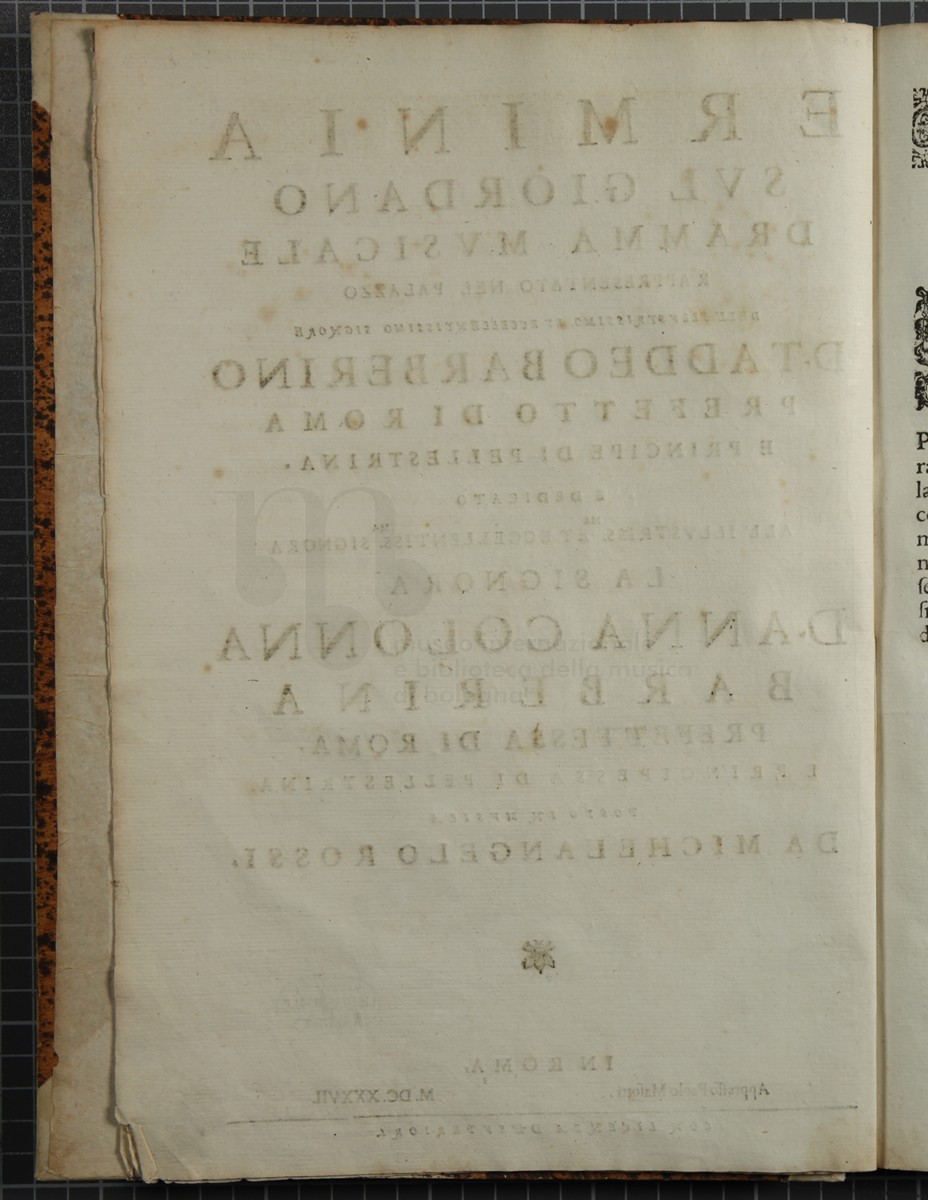 ERMINIA
SVL GIORDANO
DRAMMA MVSICALE
RAPPRESENTATO NEL PALAZZO
DELL' ILLVSTRISSIMO, ET ECCELLENTISSIMO SIGNORE
D. TADDEO BARBERINO
PREFETTO DI ROMA
E PRINCIPE DI PELLESTRINA.
E DEDICATO
ALL' ILLVSTRISS.MA ET ECCELLENTISS.MA SIGNORA
LA SIGNORA
D. ANNA COLONNA
BARBERINA
PREFETTESSA DI ROMA,
E PRINCIPESSA DI PELLESTRINA.
POSTO IN MVSICA
DA MICHELANGELO ROSSI.
IN ROMA,
Appresso Paolo Masotti. M. DC. XXXVII.
CON LICENZA DE' SVPERIORI.
museo internazionale
e biblioteca della musica
di bologna
P
ra
la
co
m
n
ſc
d